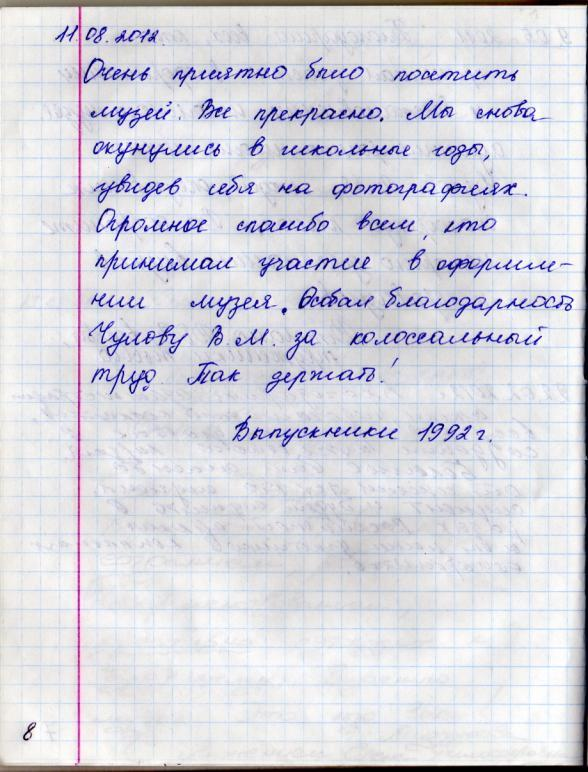 11.08.2012
Очень приятно было посетить
музей. Все прекрасно. Мы снова
окунулись в школьные годы,
увидев себя на фотографиях.
Огромное спасибо всем, кто
принимал участие в оформле-
нии музея. Особая благодарность
Чулову В.М. за колоссальный
труд. Так держать!
Выпускники 1992 г.
8